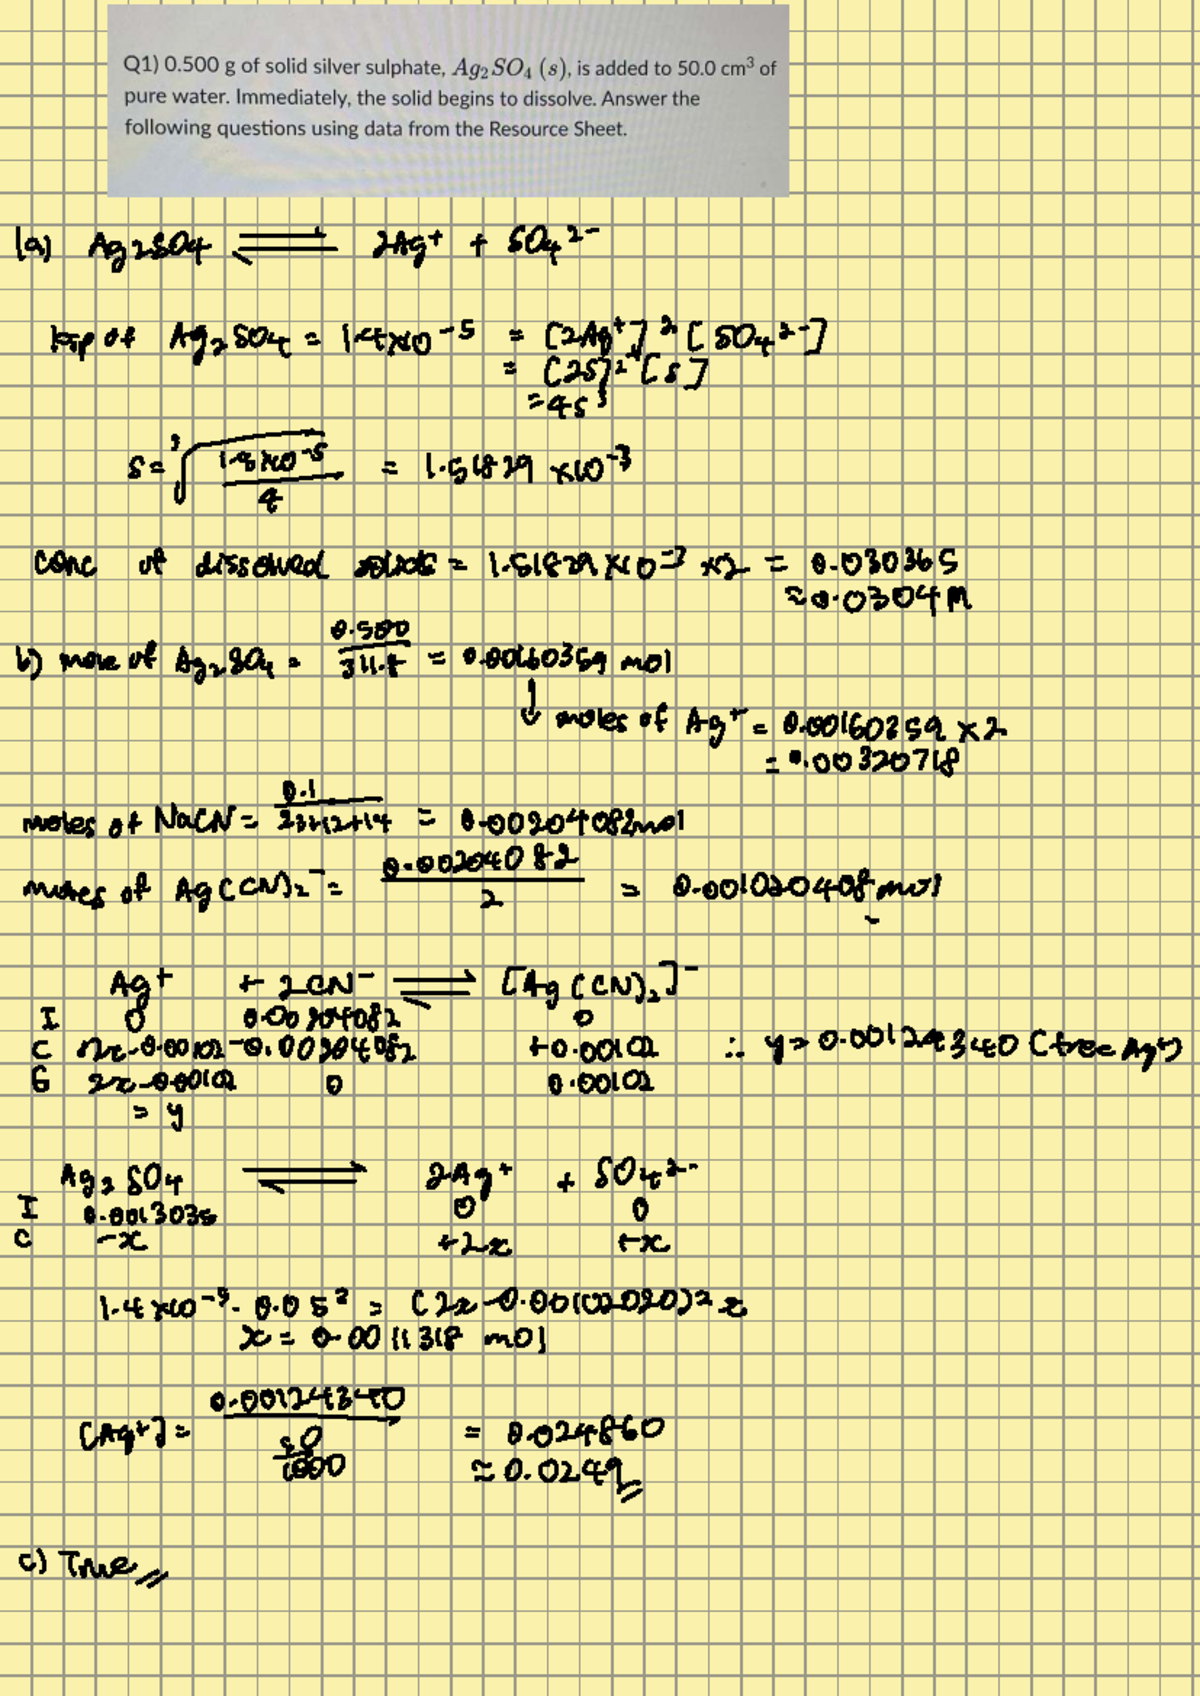 Q1) 0.500 g of solid silver sulphate, Ag₂SO₄ (s), is added to 50.0 cm³ of
pure water. Immediately, the solid begins to dissolve. Answer the
following questions using data from the Resource Sheet.
1a) Ag₂SO₄ ⇌ 2Ag⁺ + SO₄²⁻
ksp of Ag₂SO₄ = 1.4×10⁻⁵ = [2Ag⁺]²[SO₄²⁻]
= [2S]²[S]
= 4S³
S = ³√(1.4×10⁻⁵ / 4) = 1.51829 ×10⁻³
conc of dissolved solids = 1.51829 ×10⁻³ ×2 = 0.030365
≈ 0.0304 M
b) mole of Ag₂SO₄ = 0.500 / 311.8 = 0.00160359 mol
↓ moles of Ag⁺ = 0.00160359 ×2
= 0.00320718
moles of NaCN = 0.1 / 23+12+14 = 0.00204082 mol
moles of Ag(CN)₂⁻ = 0.00204082 / 2 = 0.001020408 mol
Ag⁺ + 2CN⁻ ⇌ [Ag(CN)₂]⁻
I 0 0.00204082 0
C 2x-0.00102 -0.00204082 +0.00102 ∴ y = 0.00124340 (free Ag⁺)
E 2x-0.00102 0 0.00102
= y
Ag₂SO₄ ⇌ 2Ag⁺ + SO₄²⁻
I 0 0
C -x +2x +x
1.4×10⁻⁵ · 0.05³ = (2x - 0.00102020)² x
x = 0.0011318 mol
[Ag⁺] = 0.00124340 / 50/1000 = 0.024860
≈ 0.0249
c) True